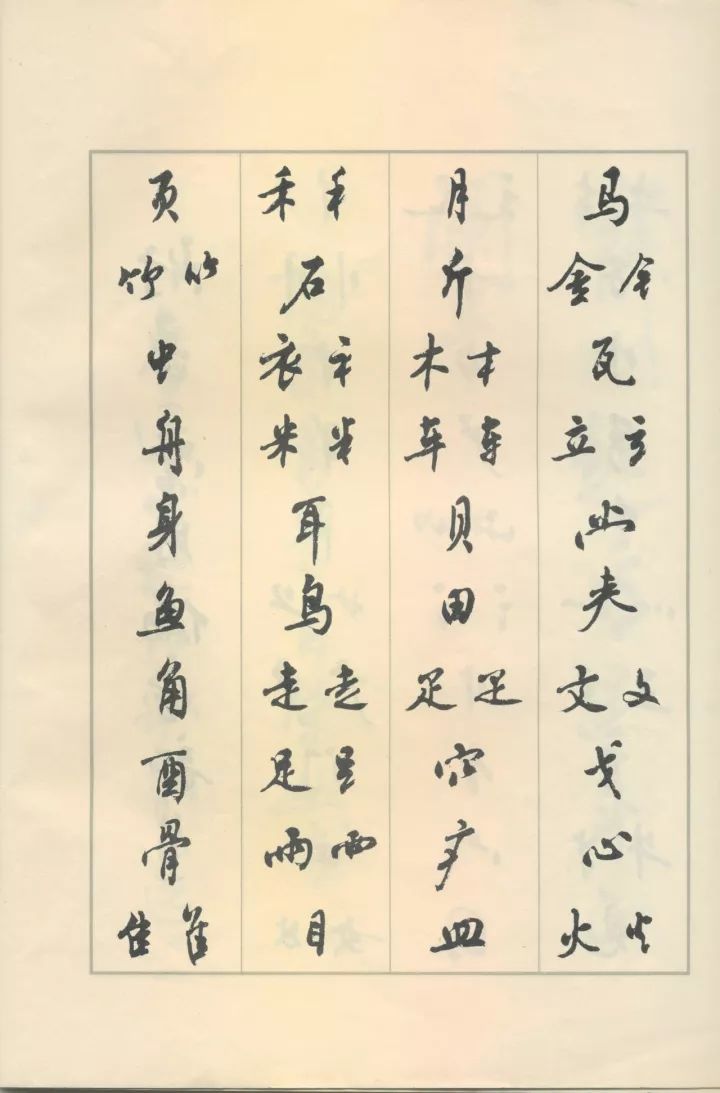 马金钅瓦立立文攵戈心火火
月斤木木车车贝田疋疋穴疒皿
禾禾石衣衤米米耳鸟走走足⻊雨雨目
页竹⺮虫舟身鱼角酉骨隹隹